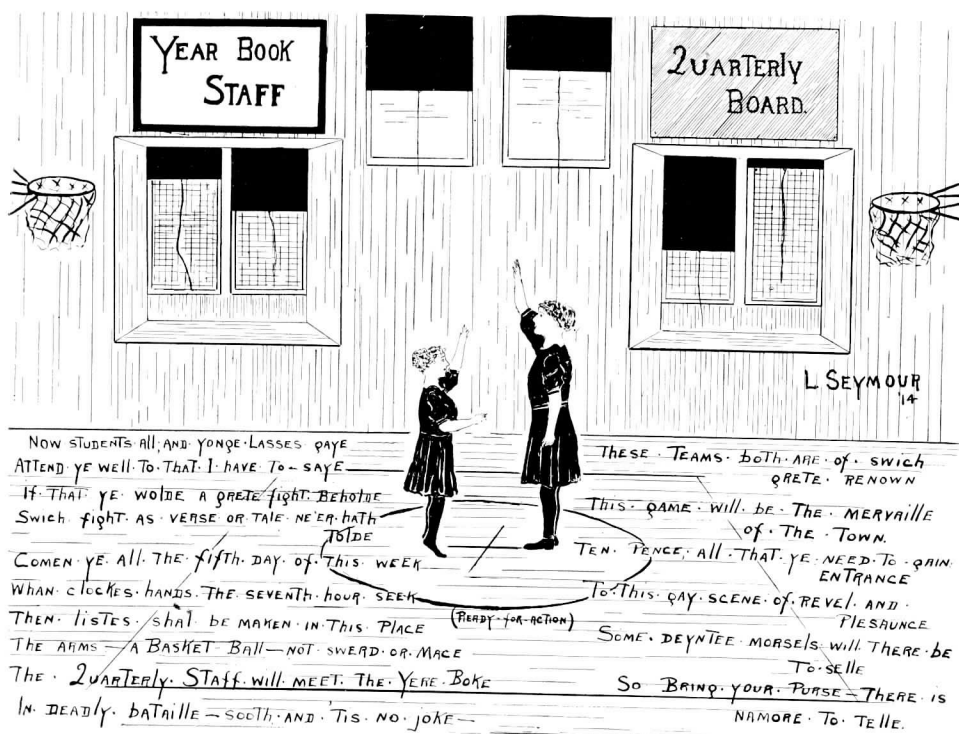 YEAR BOOK
STAFF
QUARTERLY
BOARD.
L SEYMOUR
'14
NOW STUDENTS ALL, AND YONGE LASSES GAYE
ATTEND YE WELL TO THAT I HAVE TO SAYE
If THAT YE WOLDE A GRETE fIGHT BEHOLDE
SWICH fIGHT AS VERSE OR TALE NE'ER HATH
TOLDE
COMEN YE ALL THE fIfTH DAY Of THIS WEEK
WHAN CLOCKES HANDS THE SEVENTH HOUR SEEK
THEN LISTES SHAL BE MAKEN IN THIS PLACE
THE ARMS — A BASKET BALL — NOT SWERD OR MACE
THE QUARTERLY STAFF WILL MEET THE YERE BOKE
IN DEADLY BATAILLE — SOOTH AND 'TIS NO JOKE —
(READY-fOR-ACTION)
THESE TEAMS BOTH ARE Of SWICH
GRETE RENOWN
THIS GAME WILL BE THE MERVAILLE
Of THE TOWN.
TEN PENCE, ALL THAT YE NEED TO GAIN
ENTRANCE
TO THIS GAY SCENE Of REVEL AND
PLESAUNCE
SOME DEYNTEE MORSELS WILL THERE BE
TO SELLE
SO BRING YOUR PURSE — THERE IS
NAMORE TO TELLE.